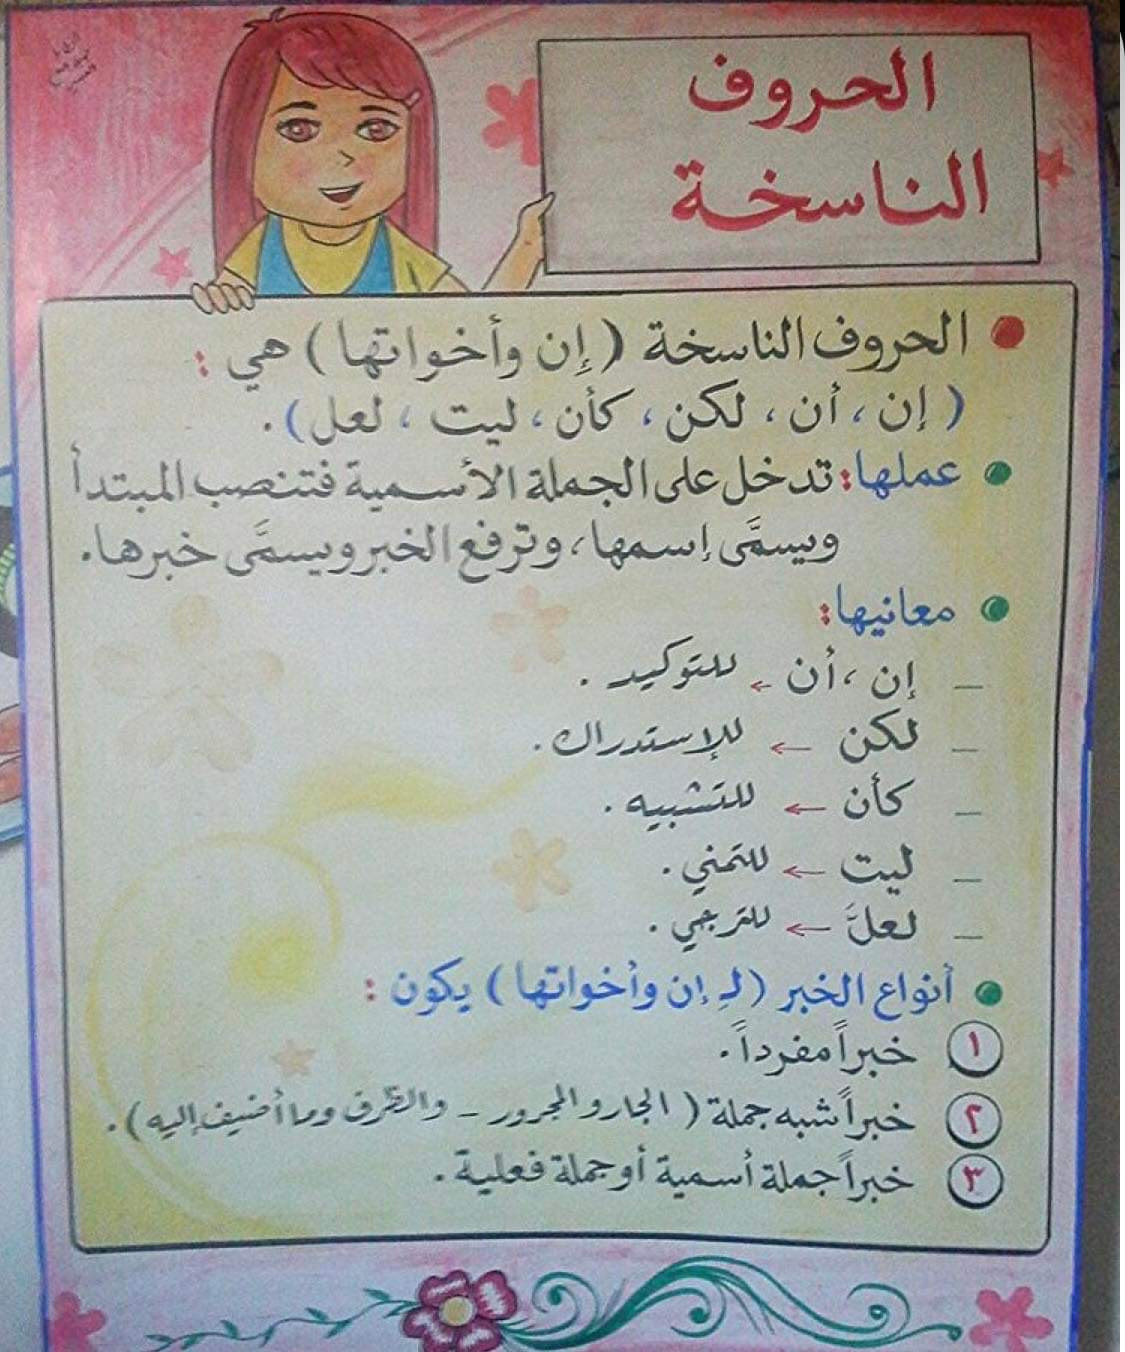 الحروف
الناسخة
الحروف الناسخة (إن وأخواتها) هي :
(إن ، أن ، لكن ، كأن ، ليت ، لعل).
عملها: تدخل على الجملة الأسمية فتنصب المبتدأ
ويسمَّى إسمها، وترفع الخبر ويسمَّى خبرها.
معانيها:
_ إن ، أن ← للتوكيد .
_ لكن ← للإستدراك .
_ كأن ← للتشبيه .
_ ليت ← للتمني .
_ لعلَّ ← للترجي .
أنواع الخبر (لـ إن وأخواتها) يكون :
١ خبراً مفرداً .
٢ خبراً شبه جملة (الجار والمجرور - والظرف وما أضيف إليه) .
٣ خبراً جملة أسمية أو جملة فعلية .